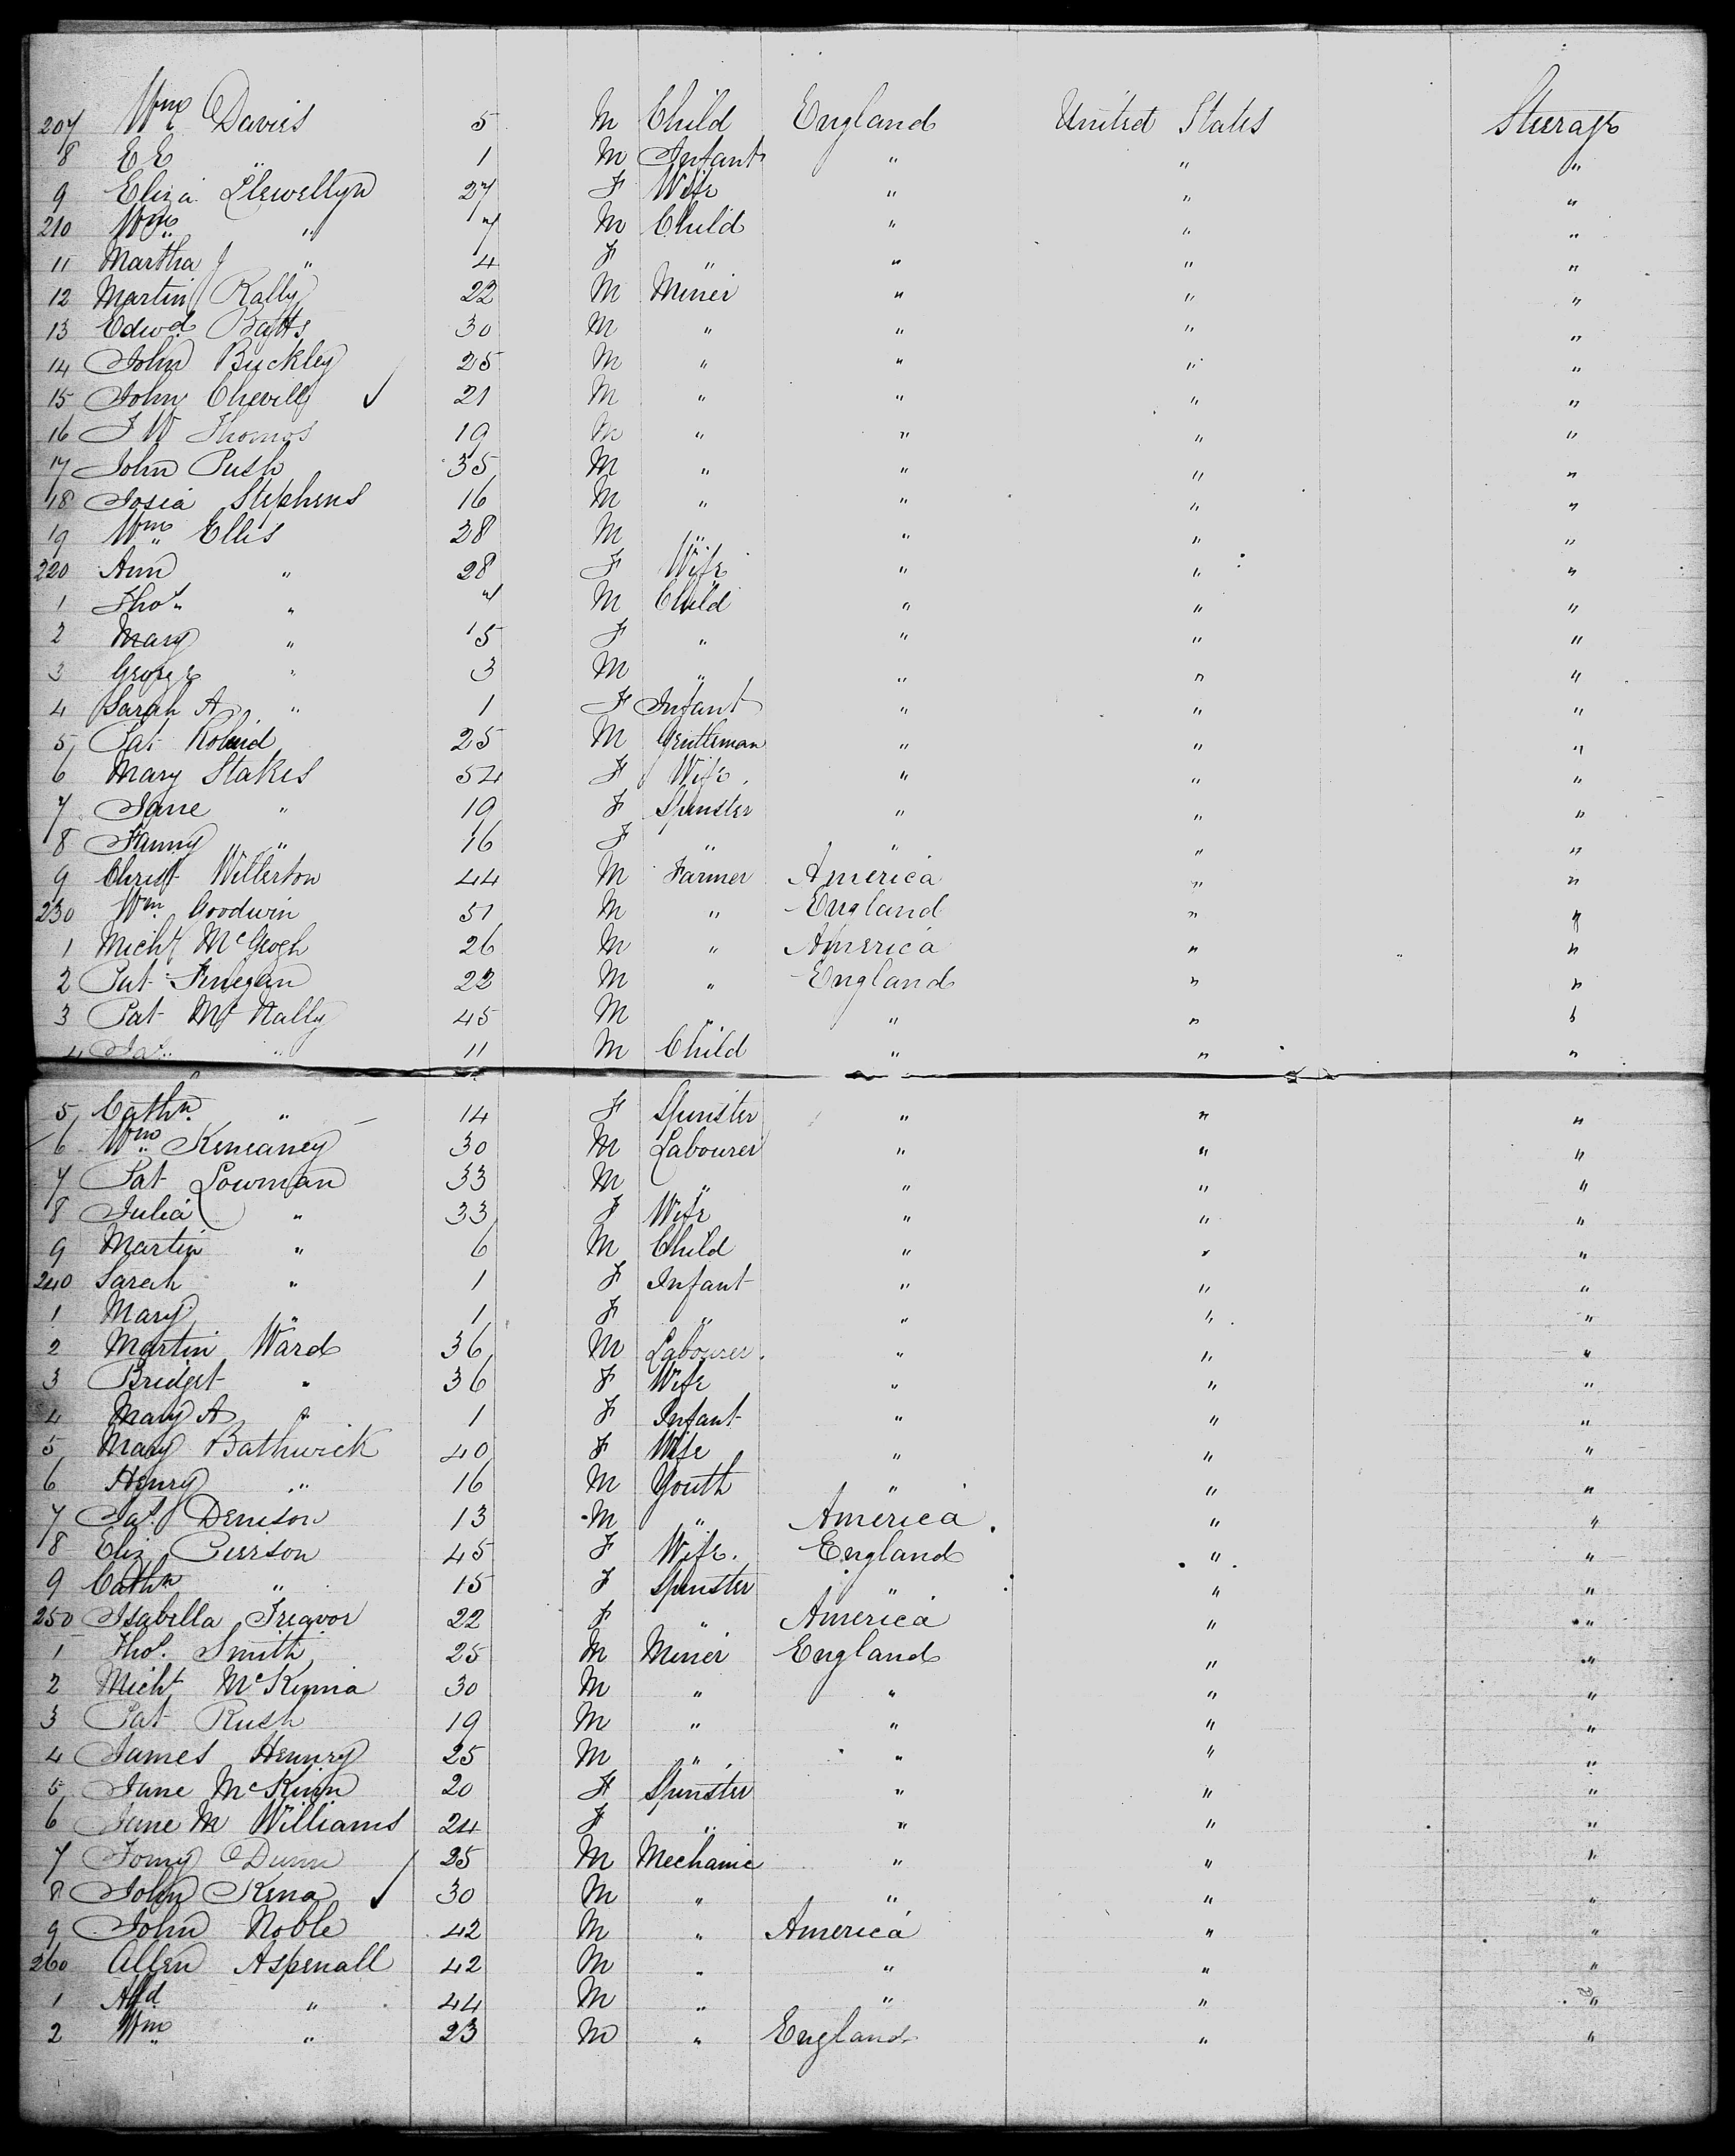 207 Wm Davies 5 M Child England United States Steerage
8 E E " 1 M Infant " " "
9 Eliza Llewellyn 27 F Wife " " "
210 Wm " 7 M Child " " "
11 Martha J " 4 F " " " "
12 Martin Rally 22 M Miner " " "
13 Edwd Batts 30 M " " " "
14 John Buckley 25 M " " " "
15 John Chevill 21 M " " " "
16 J W Thomas 19 M " " " "
17 John Push 35 M " " " "
18 Josia Stephens 16 M " " " "
19 Wm Ellis 28 M " " " "
220 Ann " 28 F Wife " " "
1 Thos " 7 M Child " " "
2 Mary " 5 F " " " "
3 George " 3 M " " " "
4 Sarah A " 1 F Infant " " "
5 Pat 25 M Gentleman " " "
6 Mary Stakes 54 F Wife " " "
7 Jane " 19 F Spinster " " "
8 Fanny " 16 F " " " "
9 Christ Willerton 44 M Farmer America " "
230 Wm Goodwin 51 M " England " "
1 Michl McGeogh 26 M " America " "
2 Pat Finegan 22 M " England " "
3 Pat Mc Nally 45 M " " " "
4 Jas " 11 M Child " " "
5 Cathn " 14 F Spinster " " "
6 Wm Keneaney 30 M Labourer " " "
7 Pat Lowman 33 M " " " "
8 Julia " 33 F Wife " " "
9 Martin " 6 M Child " " "
240 Sarah " 1 F Infant " " "
1 Mary " 1 F " " " "
2 Martin Ward 36 M Labourer " " "
3 Bridget " 36 F Wife " " "
4 Mary A " 1 F Infant " " "
5 Mary Bathwick 40 F Wife " " "
6 Henry " 16 M Youth " " "
7 Jas Denison 13 M " America " "
8 Eliz Peirson 45 F Wife England " "
9 Cathn " 15 F Spinster " " "
250 Isabella Treavor 22 F " America " "
1 Thos Smith 25 M Miner England " "
2 Michl McKenna 30 M " " " "
3 Pat Rush 19 M " " " "
4 James Hennry 25 M " " " "
5 Jane McKinn 20 F Spinster " " "
6 Jane M Williams 24 F " " " "
7 Tomy Dunn 25 M Mechanic " " "
8 John Kena 30 M " " " "
9 John Noble 42 M " America " "
260 Allen Aspenall 42 M " " " "
1 Alfd " 44 M " " " "
2 Wm " 23 M " England " "